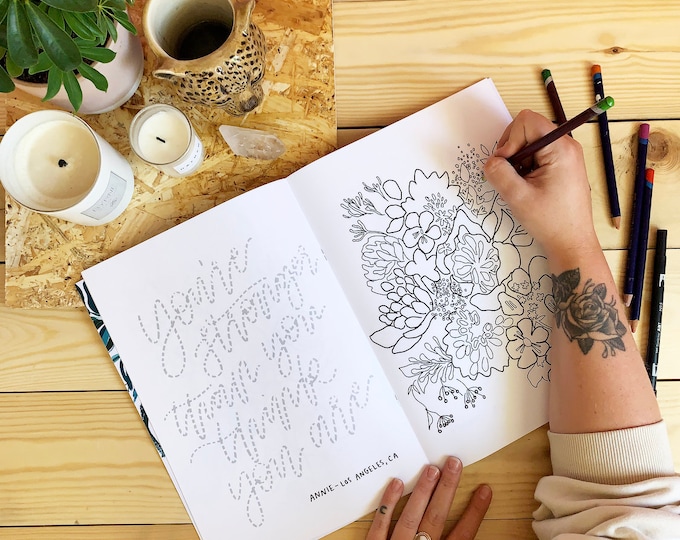 you're
stronger
than you
think
you are
ANNIE-LOS ANGELES, CA